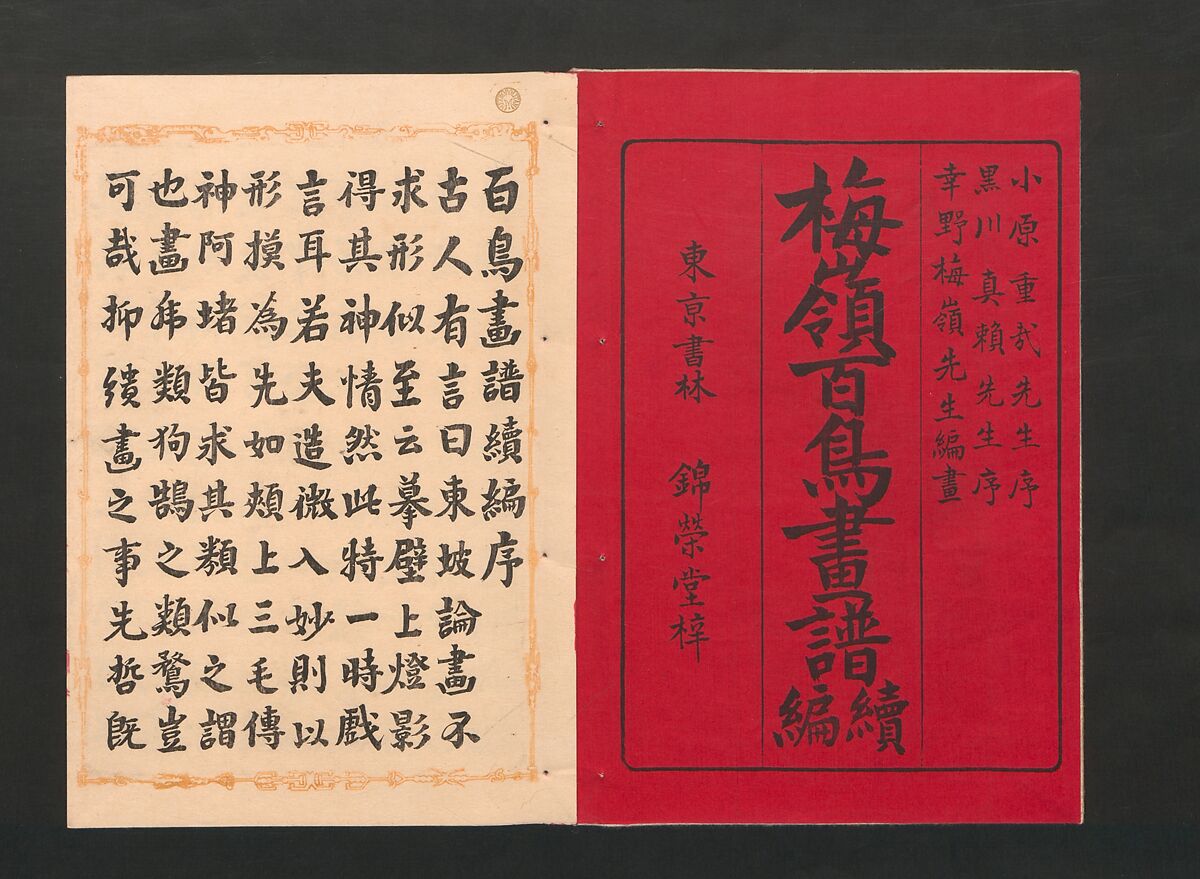 小原重哉先生序
黒川真賴先生序
幸野梅嶺先生編畫
梅嶺百鳥畫譜
續編
東亰書林 錦榮堂梓
百鳥畫譜續編序
古人有言曰東坡論畫不
求形似至云摹壁上燈影
得其神情然此特一時戲
言耳若夫造微入妙則以
形摸為先如頰上三毛傳
神阿堵皆求其類似之謂
也畫乕類狗鵠之類鶩豈
可哉抑繢畫之事先哲既